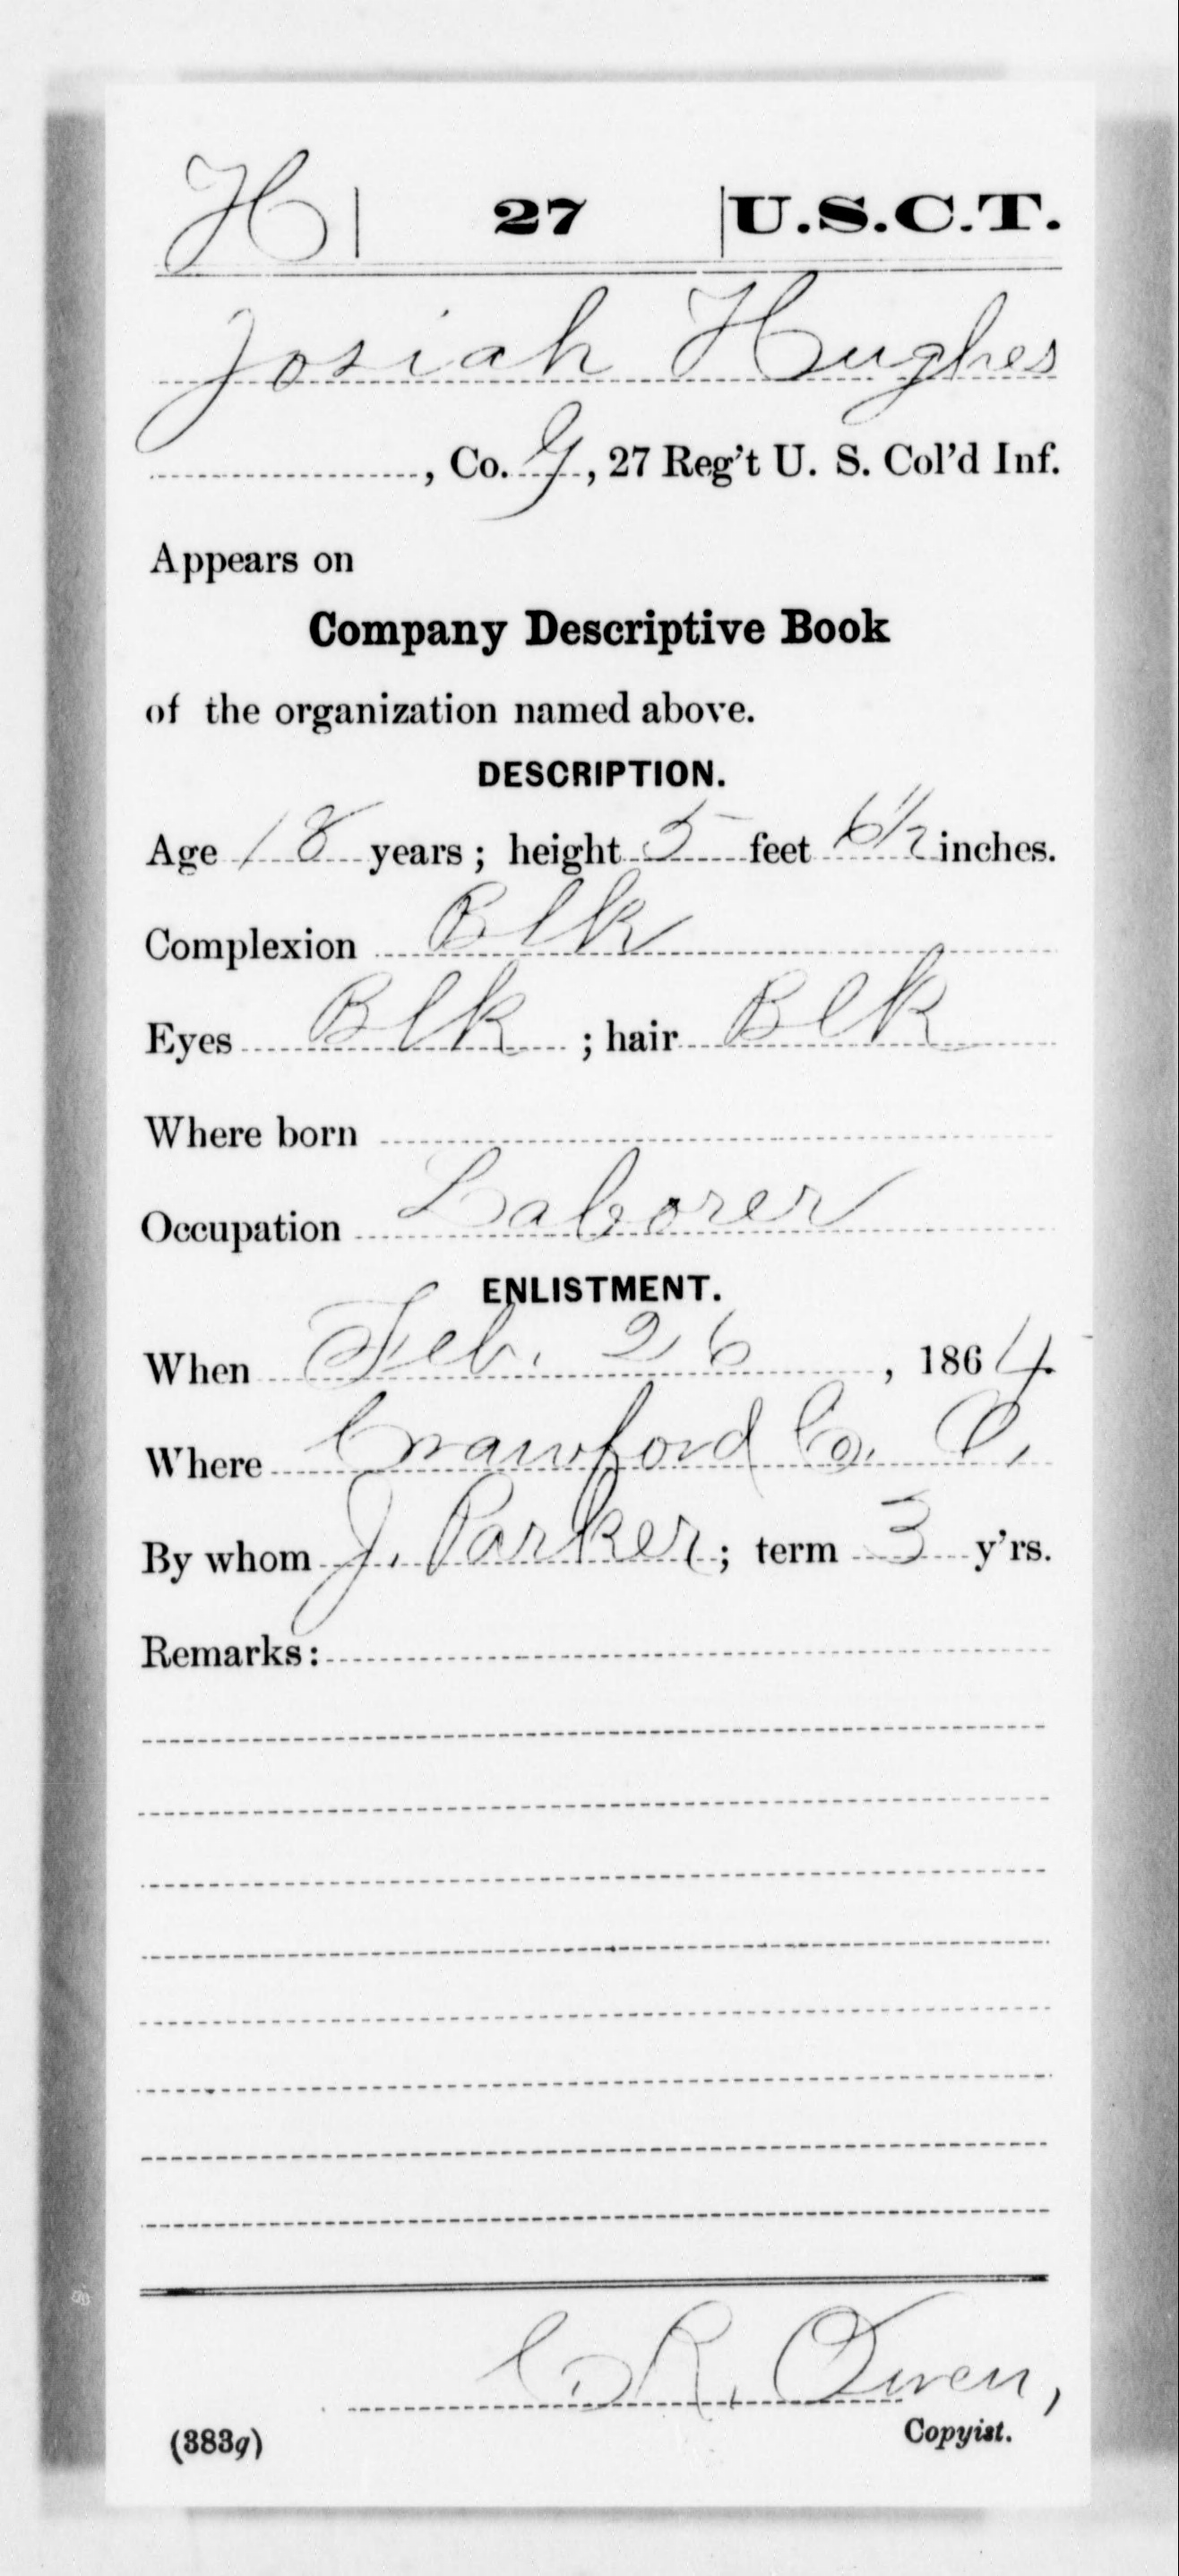 H | 27 | U.S.C.T.
Josiah Hughes
, Co. G, 27 Reg't U. S. Col'd Inf.
Appears on
Company Descriptive Book
of the organization named above.
DESCRIPTION.
Age 18 years; height 5 feet 6 1/2 inches.
Complexion Blk
Eyes Blk ; hair Blk
Where born
Occupation Laborer
ENLISTMENT.
When Feb. 26, 1864.
Where Crawford Co. O.
By whom J. Parker; term 3 y'rs.
Remarks:
C R. Owen,
Copyist.
(383g)